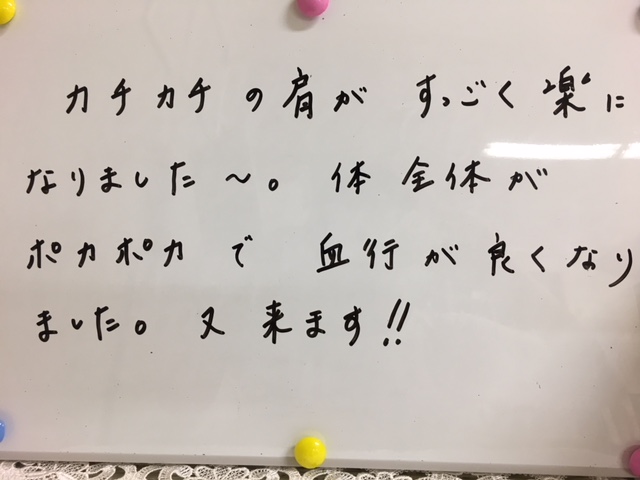 カチカチの肩がすっごく楽に
なりました～。体全体が
ポカポカで血行が良くなり
ました。又来ます!!